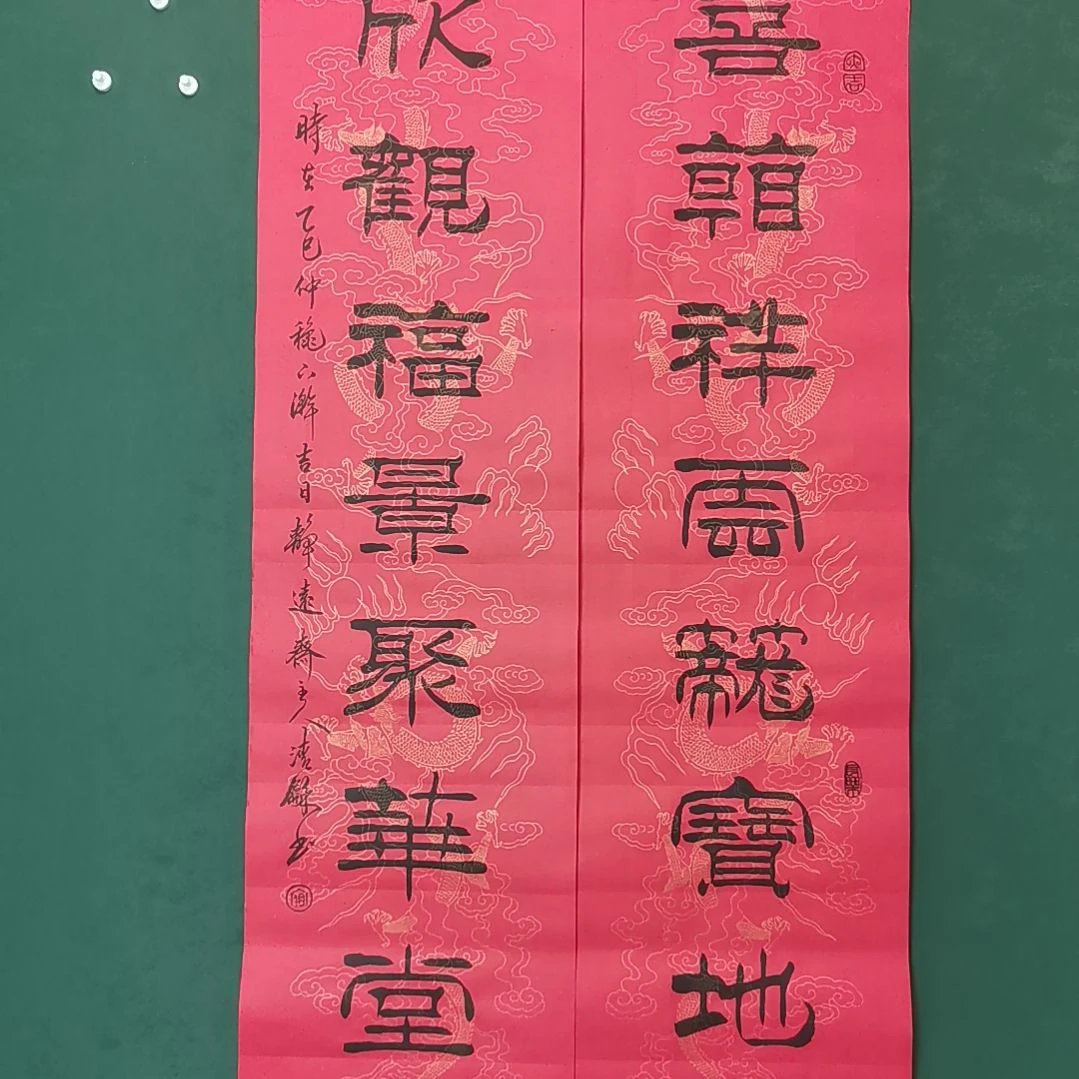 喜祥雲籠寶地
欣觀福景聚華堂
時在乙巳仲穐下澣吉日靜遠齋主人清書